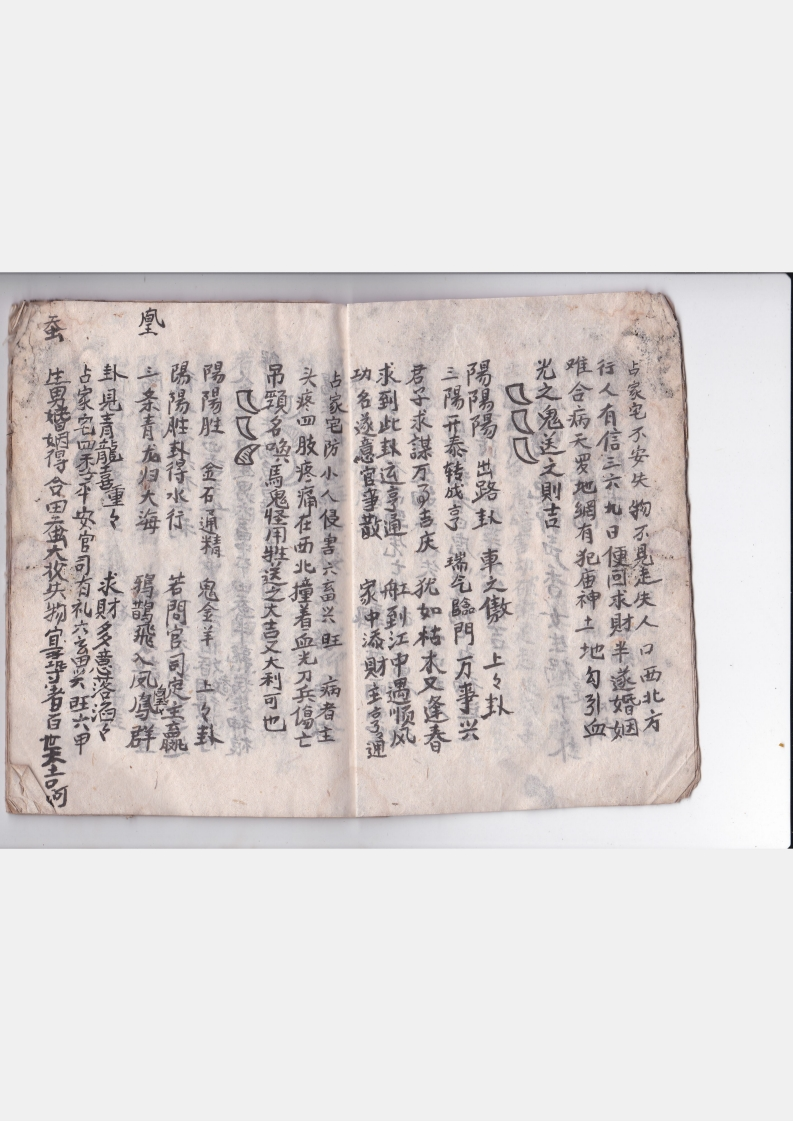 占家宅不安失物不見走失人口西北方
行人有信三六九日便回求財半遂婚姻
难合病天罗地網有犯庙神土地勾引血
光之鬼送之則吉
陽陽陽 出路卦 車之傲 上々卦
三陽开泰转成亨 瑞气臨門万事兴
君子求謀万事吉庆 犹如枯木又逢春
求到此卦运亨通 舡到江中遇顺风
功名遂意官事散 家中添财主亨通
占家宅防小人侵害六畜兴旺 病者主
头疼四肢疼痛在西北撞着血光刀兵傷亡
吊頸名喚馬鬼怪用牲送之大吉又大利可也
陽陽胜 金石通精 鬼金羊 上々卦
陽陽胜卦得水行 若問官司定主赢
三条青龙归大海 鴉鵲飛入凤凰群
凰
卦見青龍喜重々 求財多意落滔々
占家宅四季平安官司有礼六畜兴旺六甲
生男婚姻得合田蚕大收失物寻者
蚕